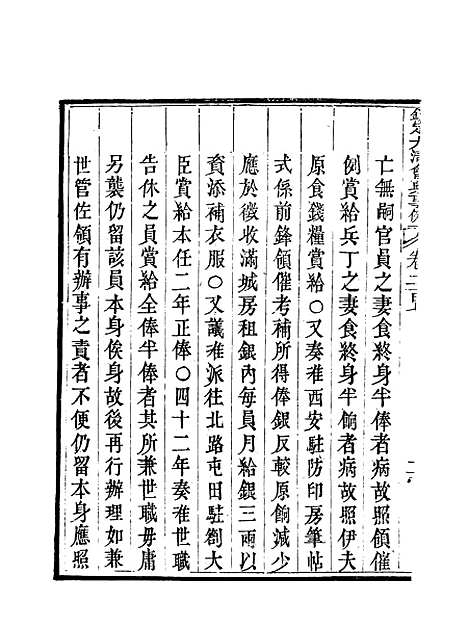 欽定大清會典事例 卷二百
亡無嗣官員之妻食終身半俸者病故照領催
例賞給兵丁之妻食終身半餉者病故照伊夫
原食錢糧賞給○又奏准西安駐防印房筆帖
式係前鋒領催考補所得俸銀反較原餉減少
應於徵收滿城房租銀內每員月給銀三兩以
資添補衣服○又議准派往北路屯田駐劄大
臣賞給本任二年正俸○四十二年奏准世職
告休之員賞給全俸半俸者其所兼世職毋庸
另襲仍留該員本身俟身故後再行辦理如兼
世管佐領有辦事之責者不便仍留本身應照